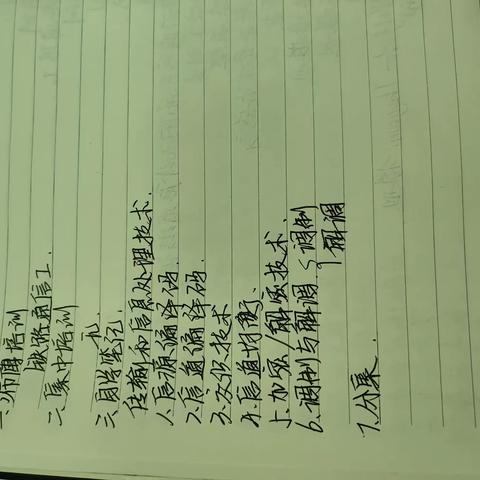 一、师傅培训
铁路通信工.
二、集中培训
三、自学笔记.
传输和信息处理技术.
1.信源编译码.
2.信道编译码.
3.交织技术
4.信道均衡、
5.加密/解密技术.
6.调制与解调 调制
解调
7.分集.